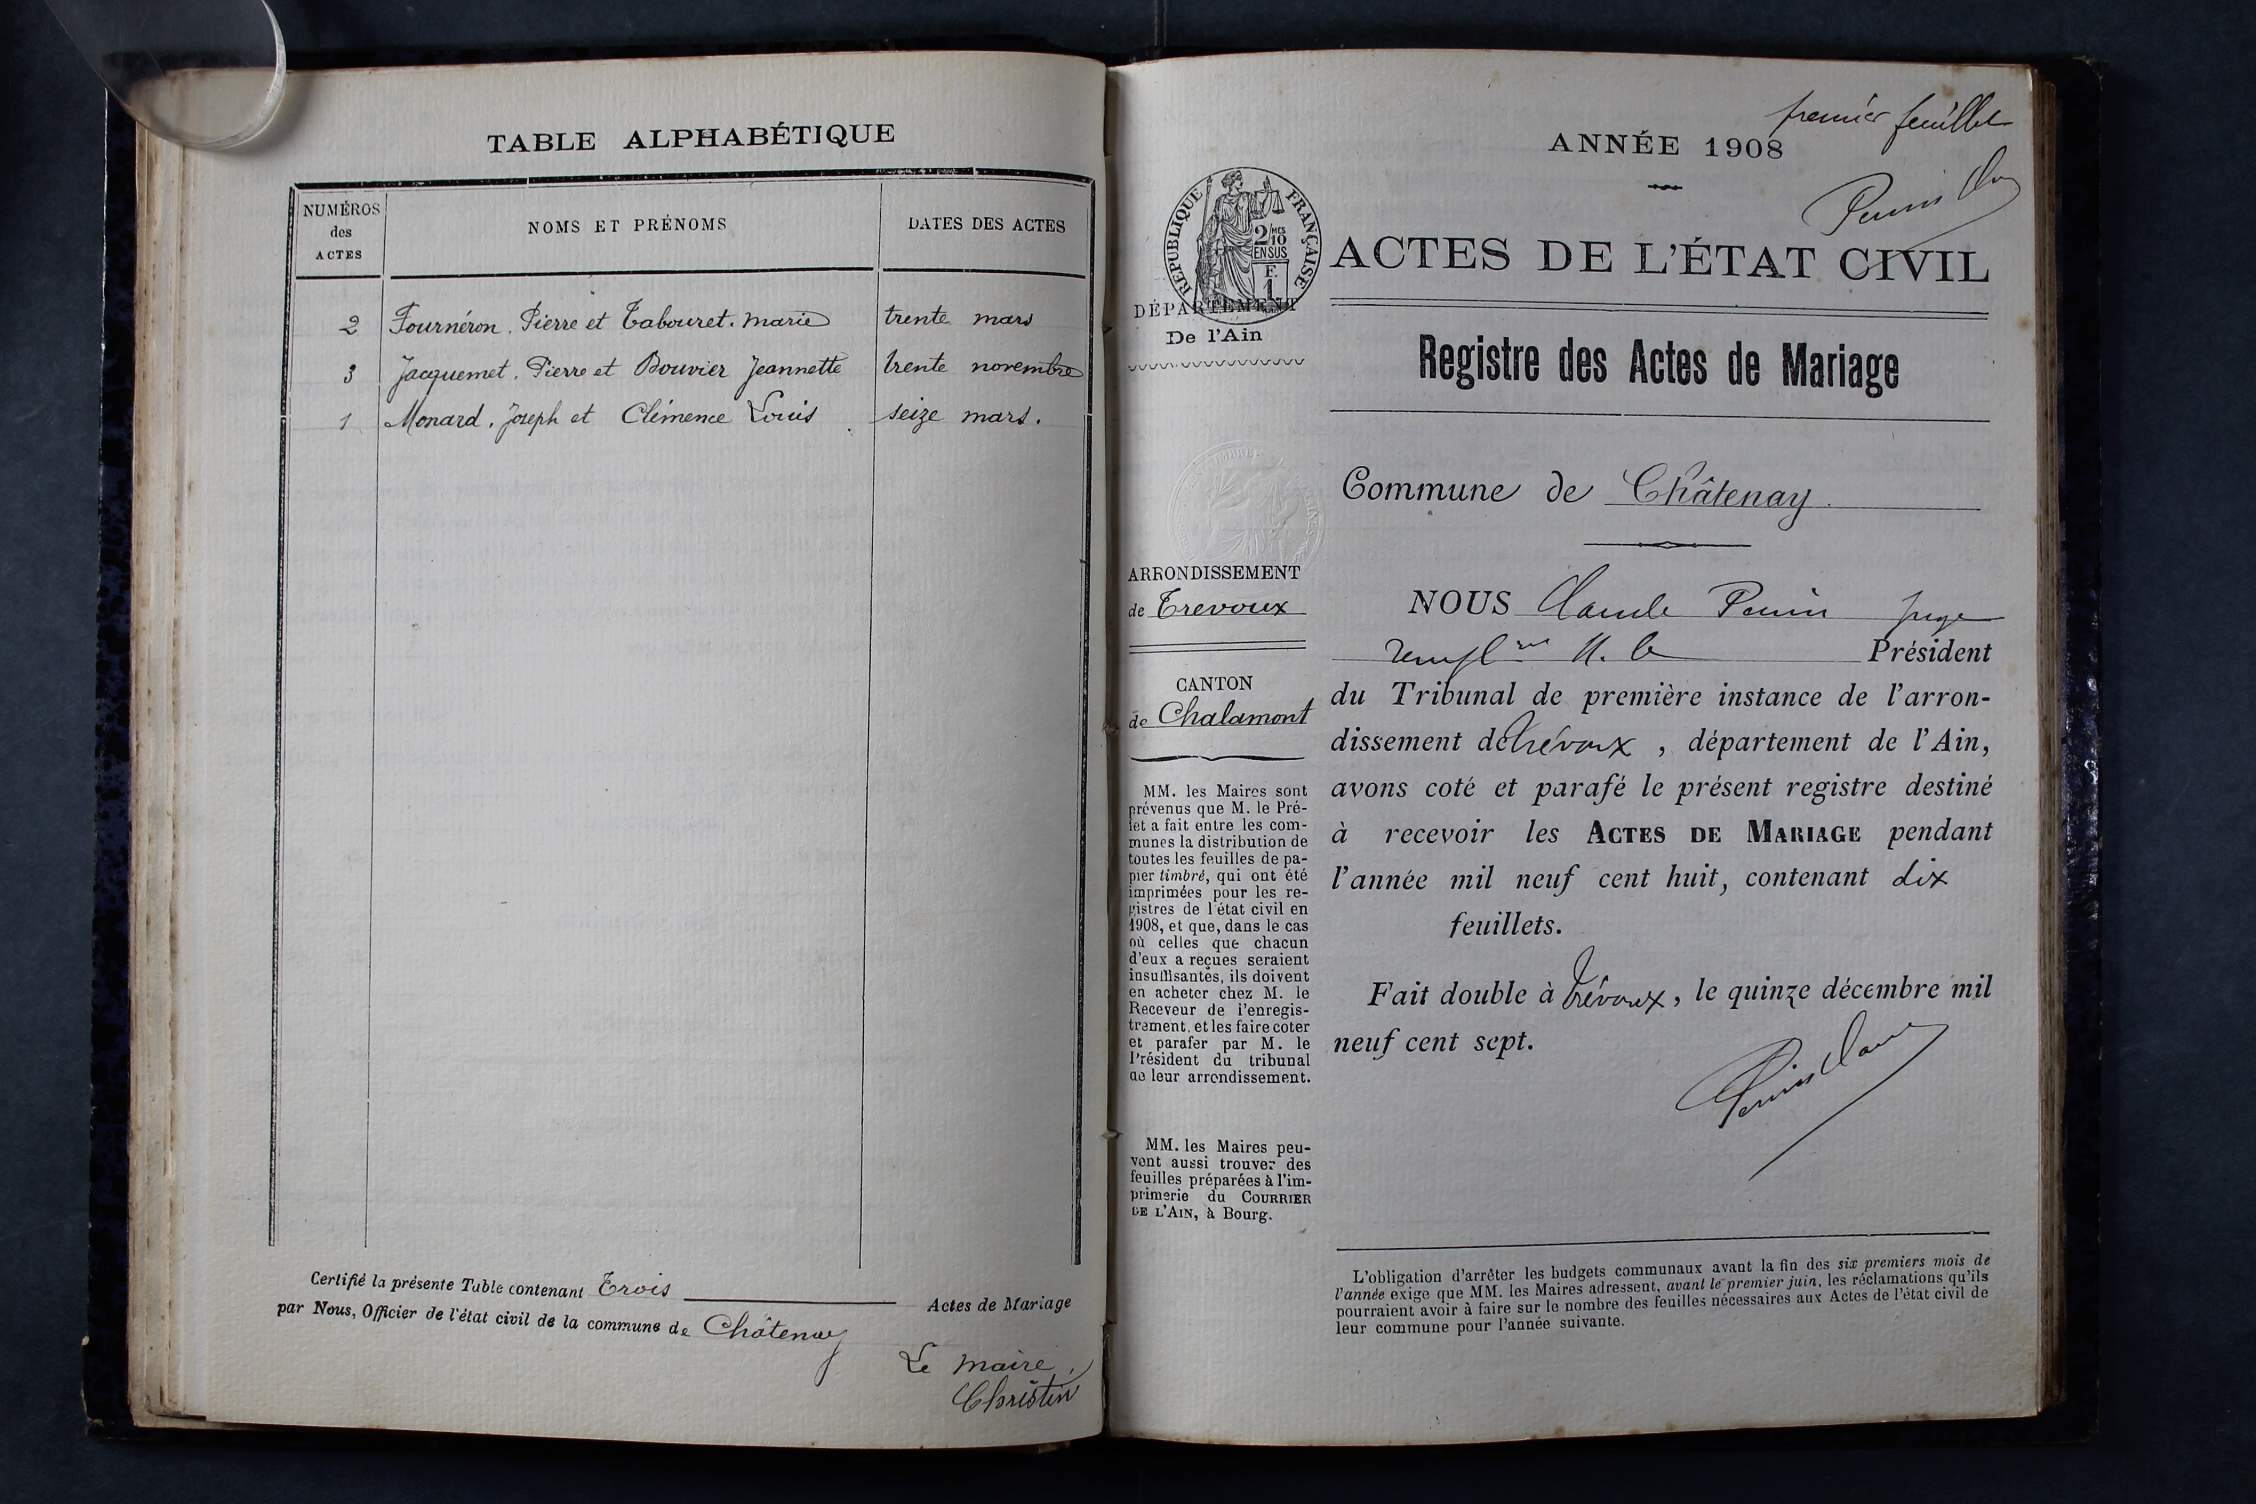 TABLE ALPHABÉTIQUE
NUMÉROS
des
ACTES
NOMS ET PRÉNOMS
DATES DES ACTES
2 Fournéron. Pierre et Tabouret. Marie trente mars
3 Jacquemet. Pierre et Bouvier Jeannette trente novembre
1 Monard. Joseph et Clémence Louis seize mars.
Certifié la présente Table contenant Trois Actes de Mariage
par Nous, Officier de l'état civil de la commune de Châtenay
Le maire,
Christin
premier feuillet
ANNÉE 1908
RÉPUBLIQUE FRANÇAISE
2/10
EN SUS
F.
1
DÉPARTEMENT
De l'Ain
ACTES DE L'ÉTAT CIVIL
Registre des Actes de Mariage
Commune de Châtenay
ARRONDISSEMENT
de Trevoux
CANTON
de Chalamont
MM. les Maires sont
prévenus que M. le Pré-
fet a fait entre les com-
munes la distribution de
toutes les feuilles de pa-
pier timbré, qui ont été
imprimées pour les re-
gistres de l'état civil en
1908, et que, dans le cas
où celles que chacun
d'eux a reçues seraient
insuffisantes, ils doivent
en acheter chez M. le
Receveur de l'enregis-
trement, et les faire coter
et parafer par M. le
Président du tribunal
de leur arrondissement.
MM. les Maires peu-
vent aussi trouver des
feuilles préparées à l'im-
primerie du COURRIER
DE L'AIN, à Bourg.
NOUS Claude Perrin juge
rempl M. le Président
du Tribunal de première instance de l'arron-
dissement de Trévoux, département de l'Ain,
avons coté et parafé le présent registre destiné
à recevoir les ACTES DE MARIAGE pendant
l'année mil neuf cent huit, contenant dix
feuillets.
Fait double à Trévoux, le quinze décembre mil
neuf cent sept.
L'obligation d'arrêter les budgets communaux avant la fin des six premiers mois de
l'année exige que MM. les Maires adressent, avant le premier juin, les réclamations qu'ils
pourraient avoir à faire sur le nombre des feuilles nécessaires aux Actes de l'état civil de
leur commune pour l'année suivante.